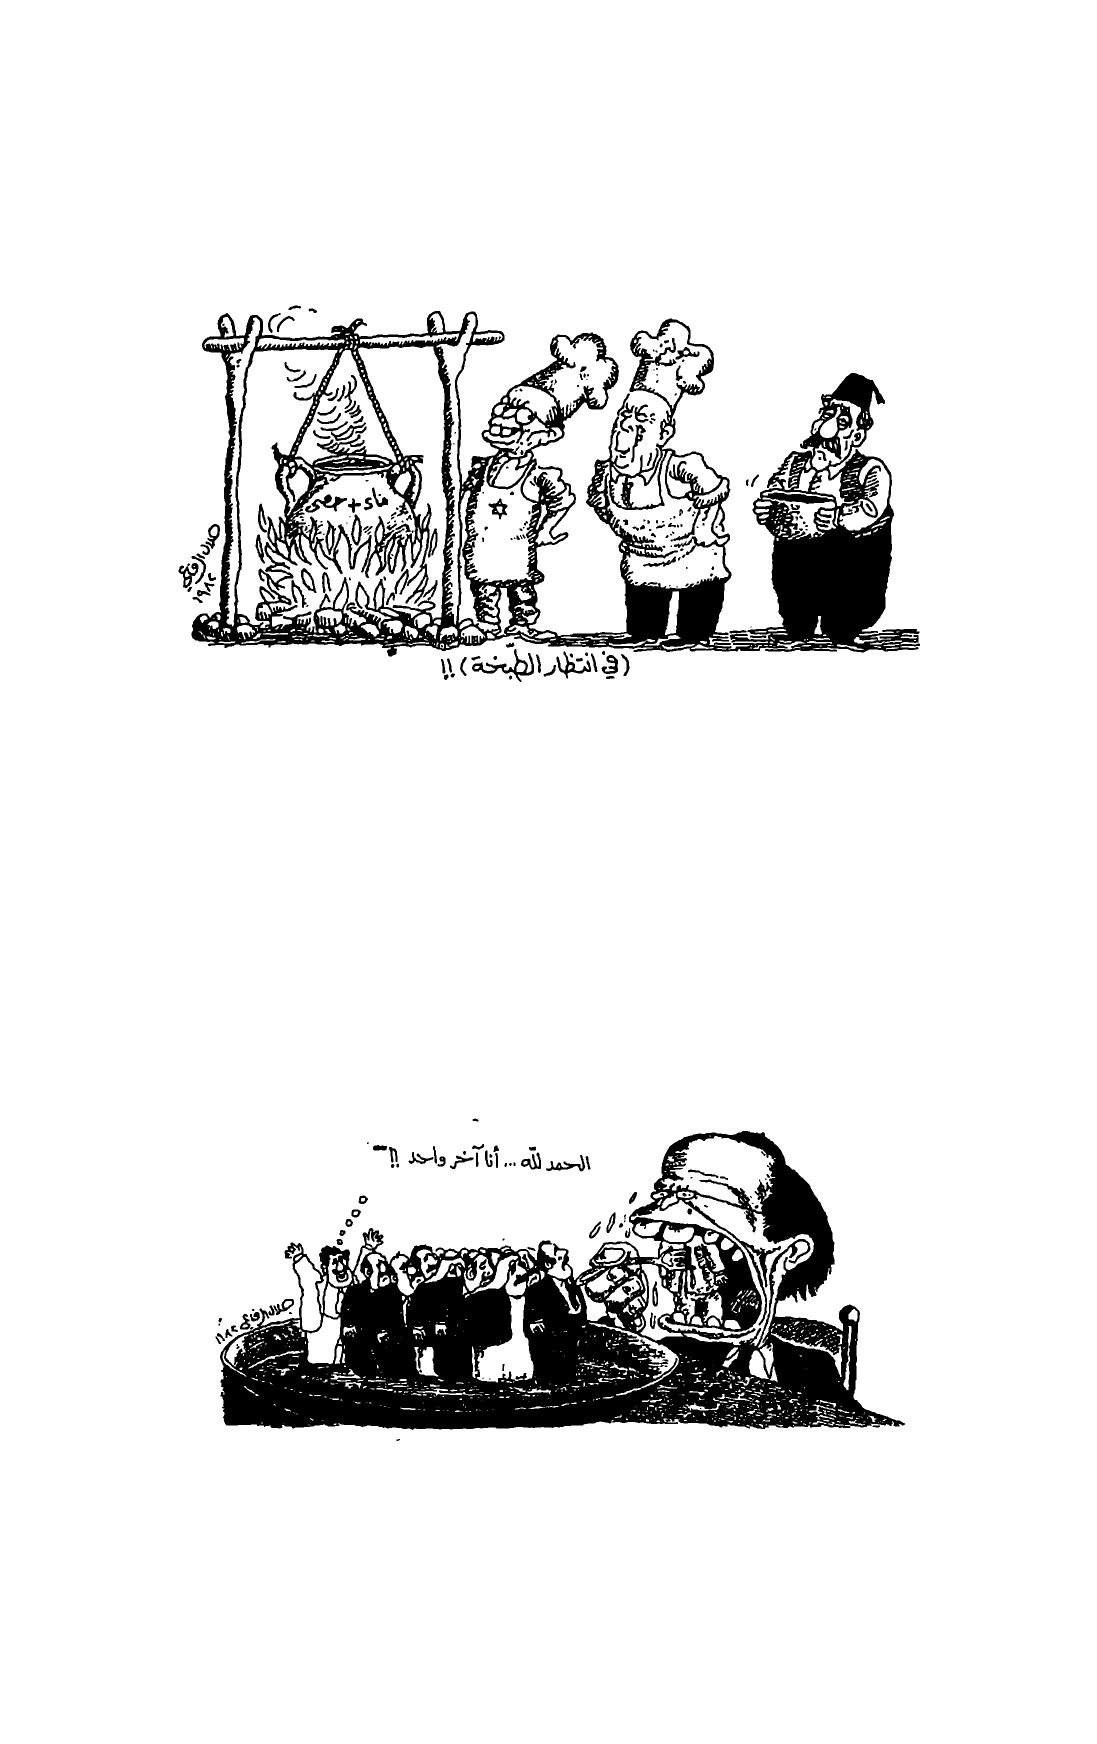 ماء + حصى
جلال الرفاعي
١٩٨٢
(في انتظار الطبّخة)!!
الحمد للّه... أنا آخر واحد!!
جلال الرفاعي